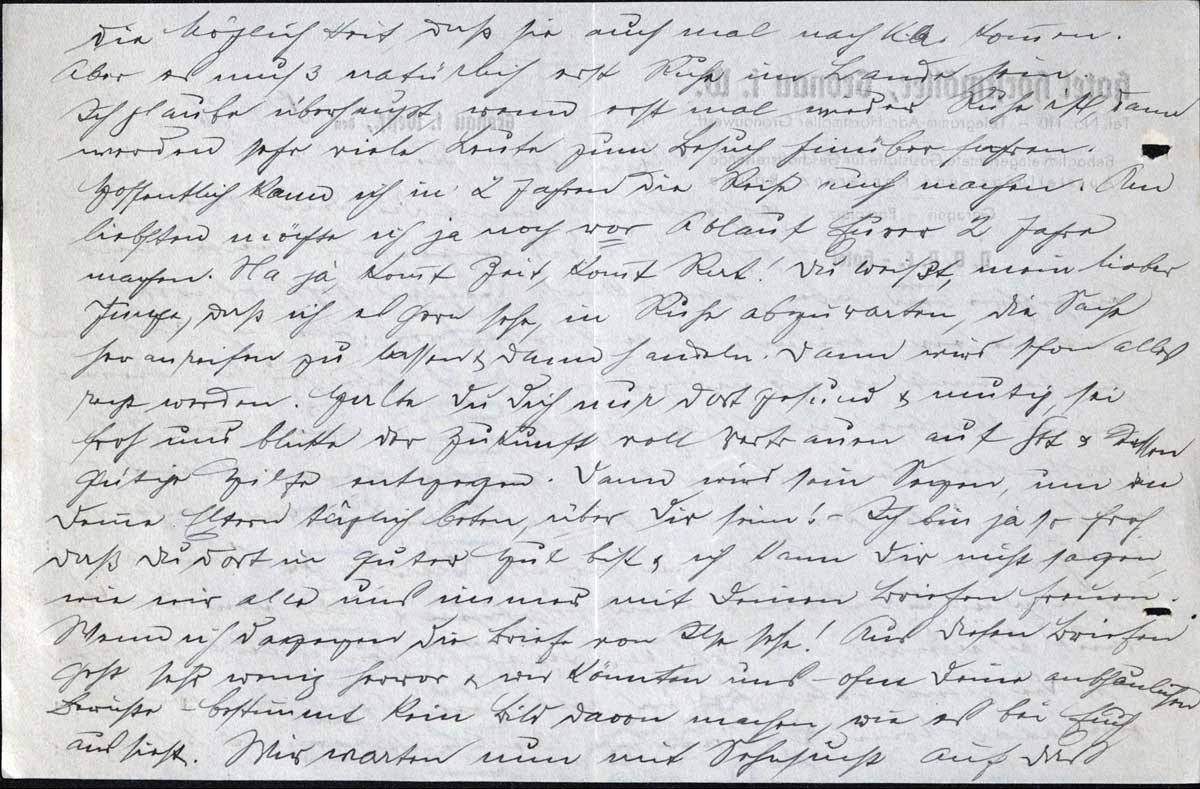 die Möglichkeit daß sie auch mal nach U.S.A. komen.
Aber es muß natürlich erst Ruhe im Lande sein
Ich glaube überhaupt wenn erst mal wieder Ruhe ist dann
werden sehr viele Leute zum Besuch hinüber fahren.
Hoffentlich kann ich in 2 Jahren die Reise auch machen. Am
liebsten möchte ich ja noch vor Ablauf Eurer 2 Jahre
machen. Na ja, komt Zeit, komt Rat! Du weißt, mein lieber
Junge, daß ich es gern sehe, in Ruhe abzuwarten, die Sache
heranreifen zu lassen & dann handeln. Dann wird schon alles
recht werden. Halte Du Dich nur dort gesund & mutig, sei
froh und blicke der Zukunft voll Vertrauen auf Gott & dessen
gütige Hilfe entgegen. Dann wird sein Segen, um den
Deine Eltern täglich beten, über Dir sein! - Ich bin ja so froh
daß Du dort in guter Hut bist & ich kann Dir nicht sagen,
wie wir alle uns immer mit Deinen Briefen freuen.
Wenn ich dagegen die Briefe von Ilse sehe! Aus diesen Briefen
geht sehr wenig hervor & wir könnten uns - ohne Deine anschaulichen
Berichte - bestimmt kein Bild davon machen, wie es bei Euch
aussieht. Wir warten nun mit Sehnsucht auf das
Hotel Hochmöller, Gronau i. W.
Gronau i. Westf., den